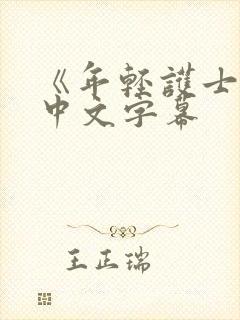 《年轻護士
中文字幕
王正瑞